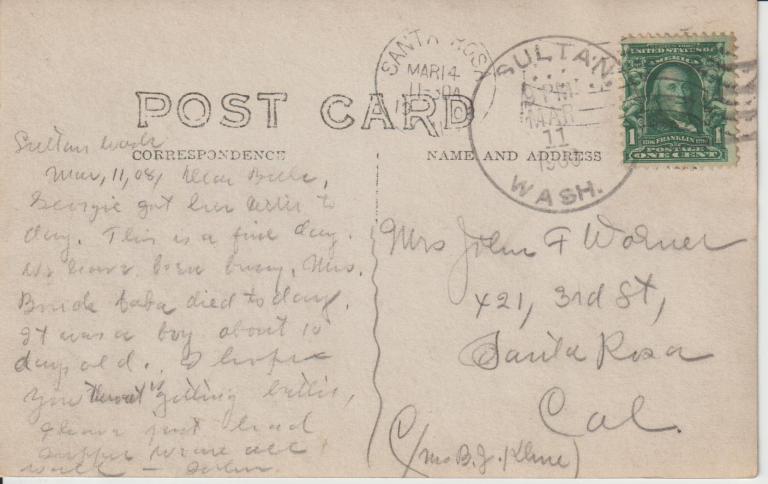 POST CARD
CORRESPONDENCE
NAME AND ADDRESS
SANTA ROSA
MAR 14
SULTAN
PM
MAR
11
WASH.
UNITED STATES OF
AMERICA
1 FRANKLIN 1
POSTAGE
ONE CENT
Sultan Wash
Mar, 11, 08, Dear
Georgie got her letter to
day. This is a fine day.
We have been busy, Mrs.
baba died to day.
It was a boy about 10
days old. I hope
your throat is getting
just had
supper we are all
well — John
Mrs John F Warner
421, 3rd St,
Santa Rosa
Cal.